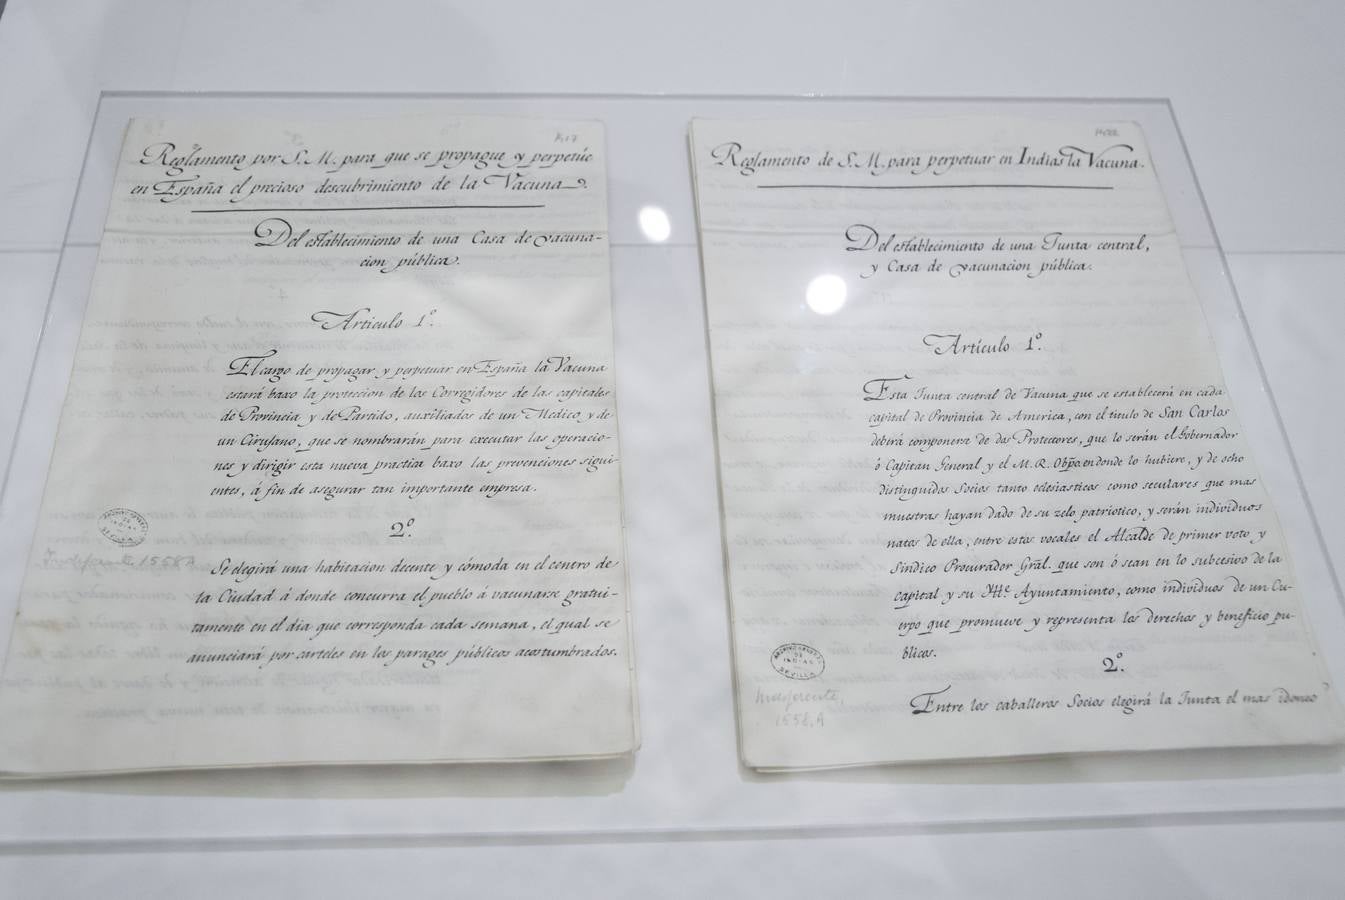 Reglamento por S. M. para que se propague y perpetúe
en España el precioso descubrimiento de la Vacuna.
Del establecimiento de una Casa de vacuna-
cion pública.
Articulo 1º.
El cargo de propagar y perpetuar en España la Vacuna
estará baxo la proteccion de los Corregidores de las capitales
de Provincia y de Partido, auxiliados de un Medico y de
un Cirujano, que se nombrarán para executar las operacio-
nes y dirigir esta nueva practica baxo las prevenciones sigui-
entes, á fin de asegurar tan importante empresa.
2º.
Se elegirá una habitacion decente y cómoda en el centro de
la Ciudad á donde concurra el pueblo á vacunarse gratui-
tamente en el dia que corresponda cada semana, el qual se
anunciará por carteles en los parages públicos acostumbrados.
ARCHIVO GENERAL
DE
INDIAS
SEVILLA
Indiferente 1558A
Reglamento de S. M. para perpetuar en Indias la Vacuna.
Del establecimiento de una Junta central,
y Casa de vacunacion pública.
Artículo 1º.
Esta Junta central de Vacuna que se establecerá en cada
capital de Provincia de America, con el titulo de San Carlos
deberá componerse de dos Protectores, que lo serán el Gobernador
ó Capitan General y el M. R. Obpo. en donde lo hubiere, y de ocho
distinguidos Socios tanto eclesiasticos como seculares que mas
muestras hayan dado de su zelo patriótico, y serán individuos
natos de ella, entre estos vocales el Alcalde de primer voto y
Sindico Procurador Gral. que son ó sean en lo subcesivo de la
capital y su Ayuntamiento, como individuos de un Cu-
erpo que promueve y representa los derechos y beneficio pu-
blicos.
2º.
Entre los caballeros Socios elegirá la Junta el mas idoneo
ARCHIVO GENERAL
DE
INDIAS
SEVILLA
Indiferente,
1558,A